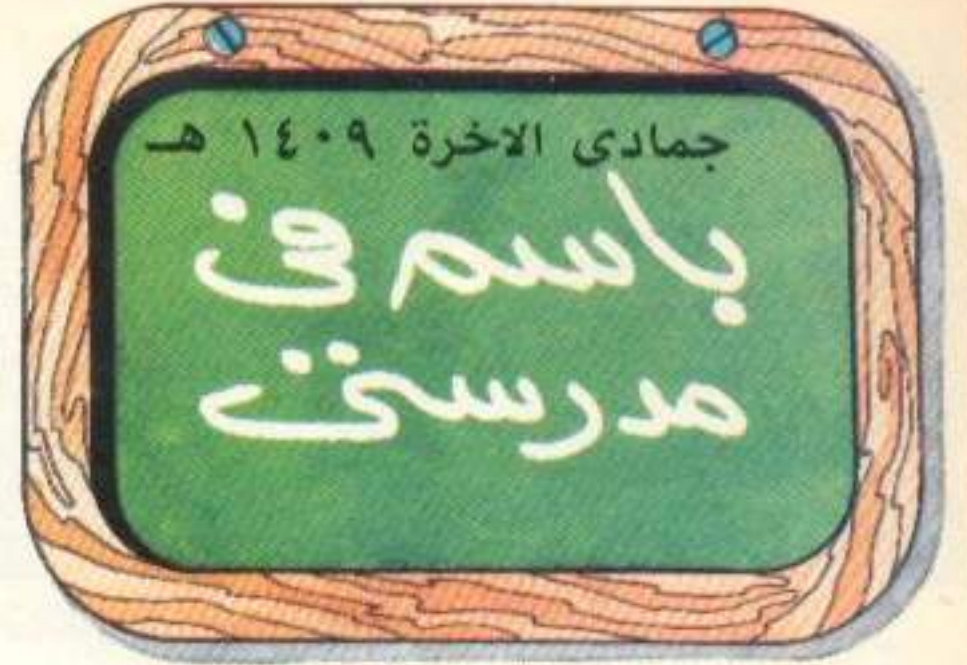 جمادى الاخرة ١٤٠٩ هـ
باسم في
مدرستي